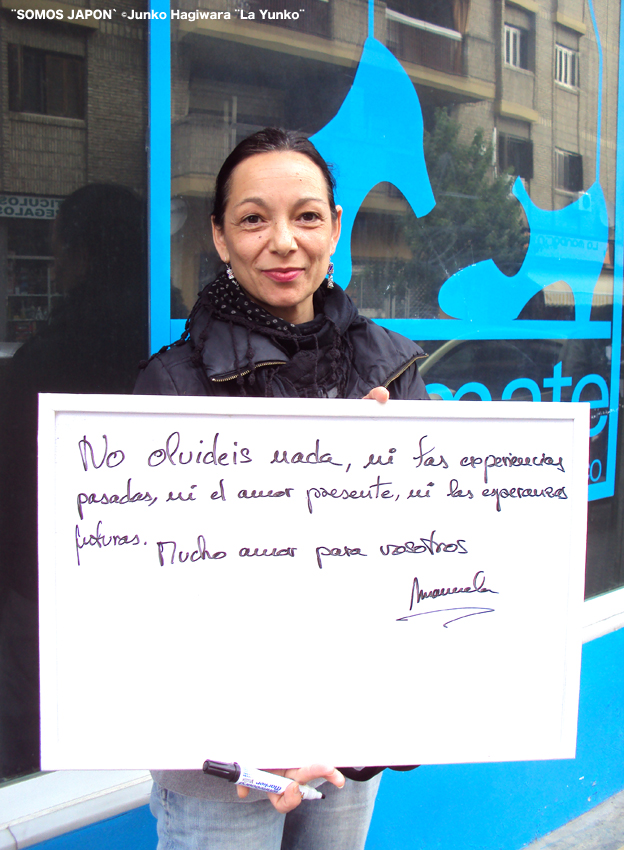 ¨SOMOS JAPON` ©Junko Hagiwara ¨La Yunko¨
No olvideis nada, ni las experiencias
pasadas, ni el amor presente, ni las esperanzas
futuras. Mucho amor para vosotros
Manuela
mate